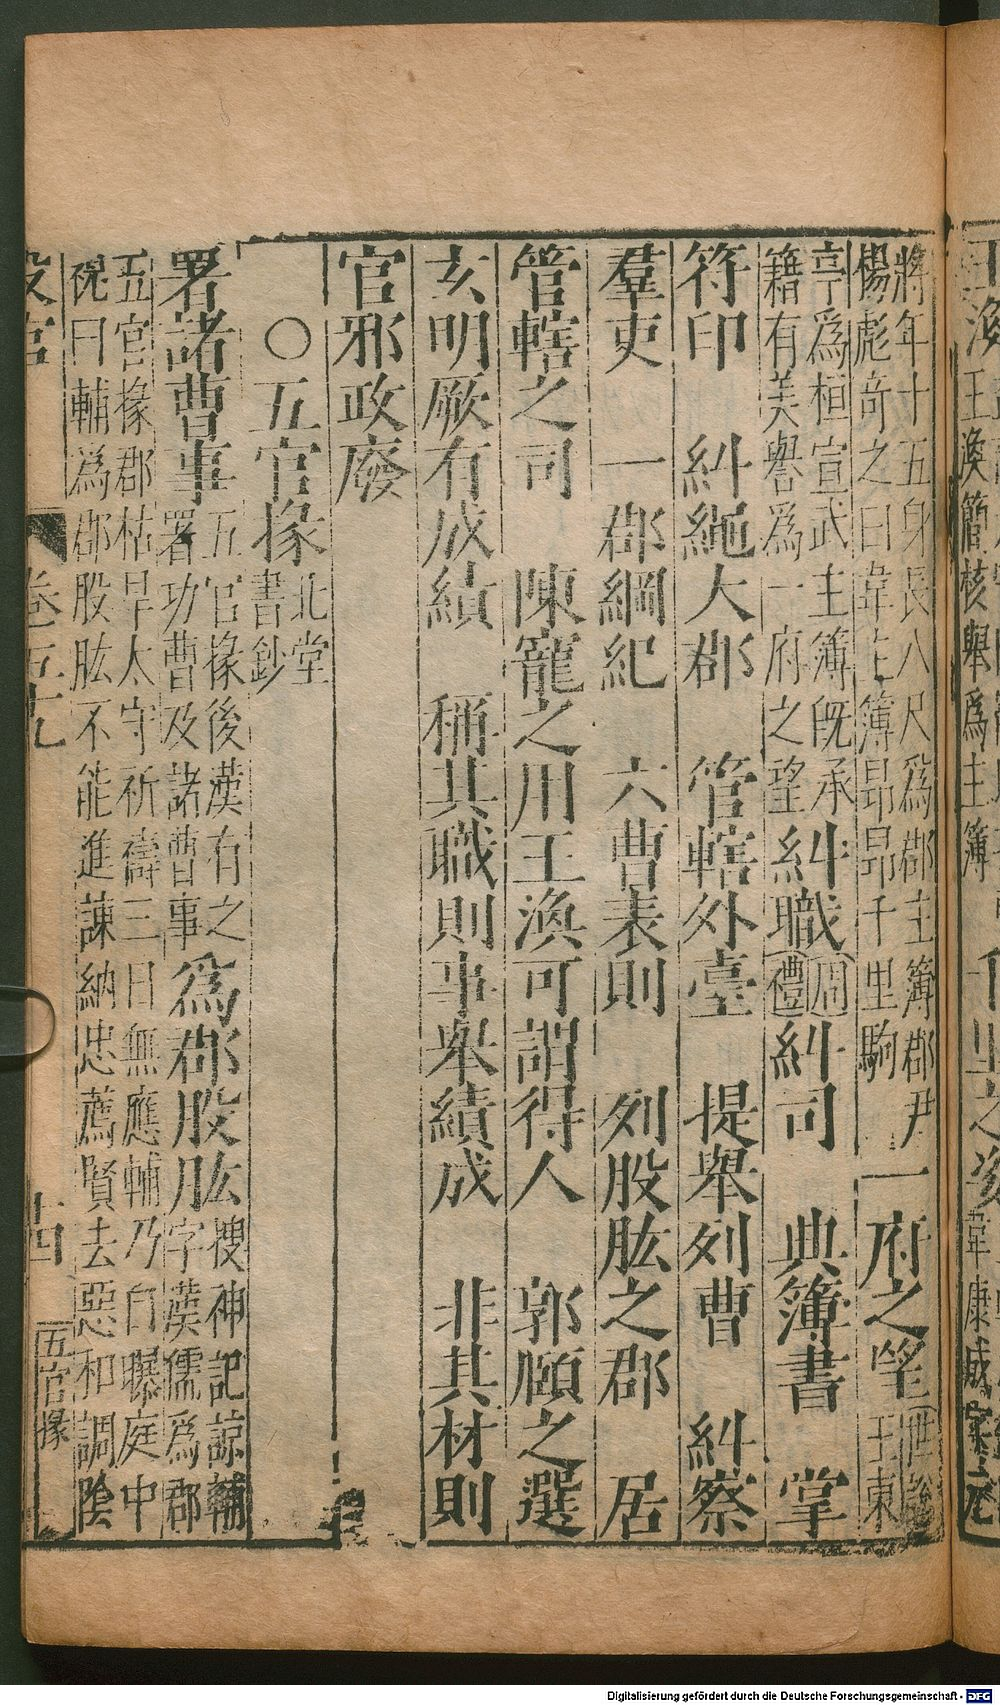 將年十五身長八尺爲郡主簿郡尹
楊彪奇之曰韋主簿昂昂千里駒
一府之望
世說
王東
亭爲桓宣武主簿旣承
籍有美譽爲一府之望
糾職
周
禮
糾司 典簿書 掌
符印 糾繩大郡 管轄外臺 提舉列曹 糾察
羣吏 一郡綱紀 六曹表則 列股肱之郡 居
管轄之司 陳寵之用王渙可謂得人 郭頎之選
玄明厥有成績 稱其職則事舉績成 非其材則
官邪政廢
○五官掾
北堂
書鈔
署諸曹事
五官掾後漢有之
署功曹及諸曹事
爲郡股肱
搜神記諒輔
字漢儒爲郡
五官掾郡枯旱太守祈禱三日無應輔乃自曝庭中
祝曰輔爲郡股肱不能進諫納忠薦賢去惡和調陰
設官
卷五十九
十四
五官掾
王渙簡核舉爲主簿
千里之
韋康
字元
Digitalisierung gefördert durch die Deutsche Forschungsgemeinschaft - DFG